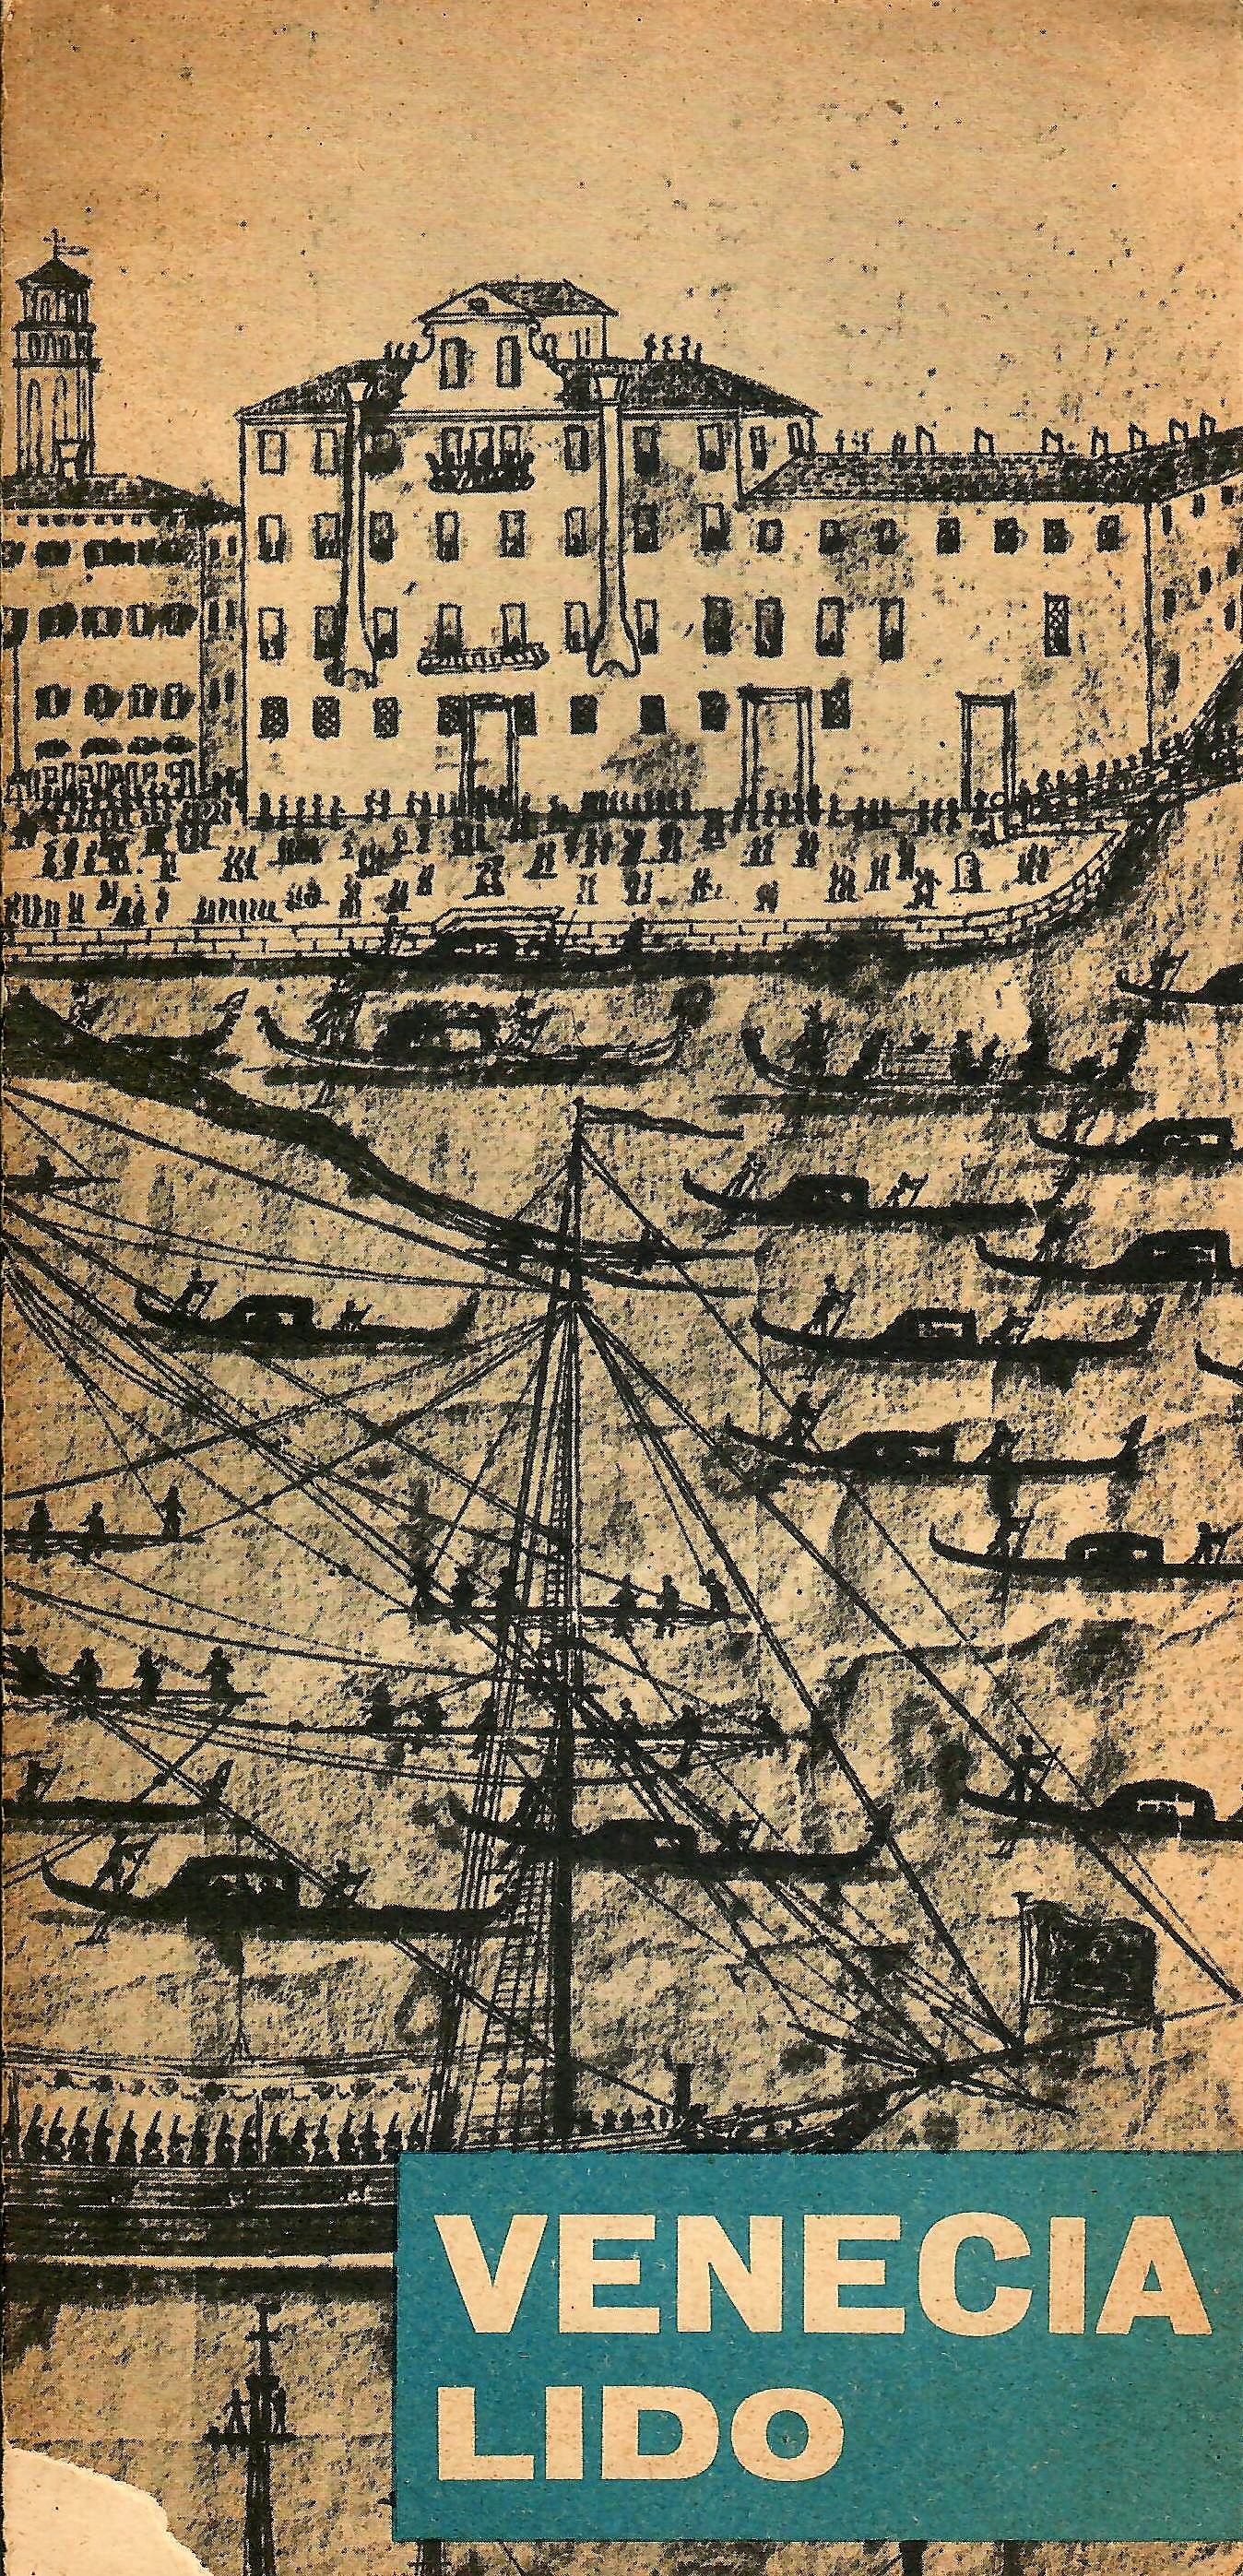 VENECIA
LIDO